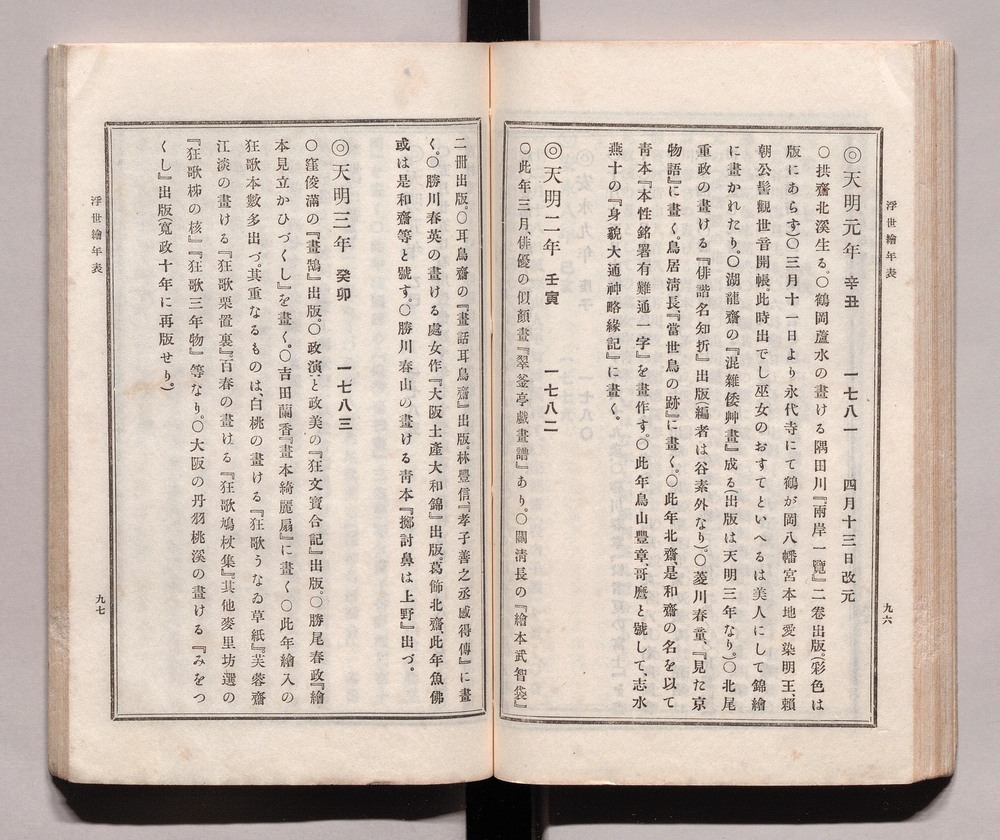 浮世繪年表
九六
◎天明元年 辛丑 一七八一 四月十三日改元
○拱齋北溪生る。○鶴岡蘆水の畫ける隅田川『兩岸一覽』二卷出版。(彩色は
版にあらす)○三月十一日より永代寺にて鶴が岡八幡宮本地愛染明王、賴
朝公髻觀世音開帳。此時出でし巫女のおすてといへるは美人にして錦繪
に畫かれたり。○湖龍齋の『混雜倭艸畫』成る(出版は天明三年なり。)○北尾
重政の畫ける『俳諧名知折』出版(編者は谷素外なり)。○菱川春童、『見た京
物語』に畫く。鳥居淸長、『當世鳥の跡』に畫く。○此年北齋、是和齋の名を以て
靑本『本性銘署有難通一字』を畫作す。○此年鳥山豐章、哥麿と號して、志水
燕十の『身貌大通神略緣記』に畫く。
◎天明二年 壬寅 一七八二
○此年三月、俳優の似顏畫『翠釜亭戲畫譜』あり。○關淸長の『繪本武智袋』
二册出版。○耳鳥齋の『畫話耳鳥齋』出版。林豐信、『孝子善之丞感得傳』に畫
く。○勝川春英の畫ける處女作『大阪土產大和錦』出版。葛飾北齋、此年魚佛
或は是和齋等と號す。○勝川春山の畫ける靑本『擲討鼻は上野』出づ。
◎天明三年 癸卯 一七八三
○窪俊滿の『畫鵠』出版。○政演と政美の『狂文寳合記』出版。○勝尾春政『繪
本見立かひづくし』を畫く。○吉田蘭香『畫本綺麗扇』に畫く○此年繪入の
狂歌本數多出づ。其重なるものは、白桃の畫ける『狂歌うなゐ草紙』『芙蓉齋
江淡の畫ける『狂歌栗置裏』『百春の畫ける『狂歌鳩杖集』『其他麥里坊選の
『狂歌柿の核』『狂歌三年物』等なり。○大阪の丹羽桃溪の畫ける『みをつ
くし』出版(寬政十年に再版せり。)
浮世繪年表
九七